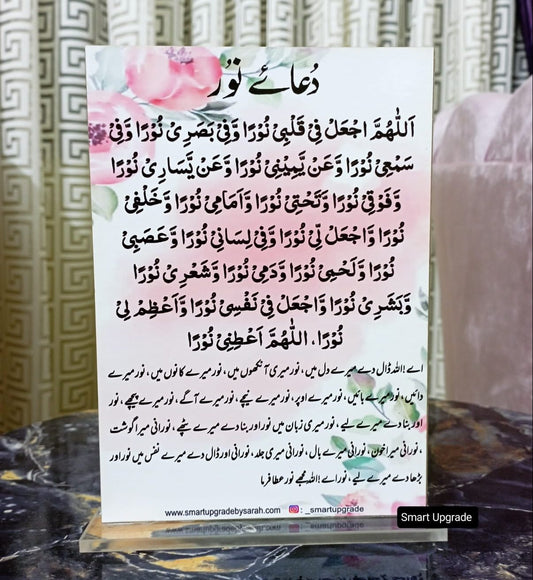 دُعائے نُور
اَللّٰهُمَّ اجْعَلْ فِيْ قَلْبِيْ نُوْرًا وَّفِيْ بَصَرِيْ نُوْرًا وَّفِيْ
سَمْعِيْ نُوْرًا وَّعَنْ يَّمِيْنِيْ نُوْرًا وَّعَنْ يَّسَارِيْ نُوْرًا
وَّفَوْقِيْ نُوْرًا وَّتَحْتِيْ نُوْرًا وَّاَمَامِيْ نُوْرًا وَّخَلْفِيْ
نُوْرًا وَّاجْعَلْ لِّيْ نُوْرًا وَّفِيْ لِسَانِيْ نُوْرًا وَّعَصَبِيْ
نُوْرًا وَّلَحْمِيْ نُوْرًا وَّدَمِيْ نُوْرًا وَّشَعْرِيْ نُوْرًا
وَّبَشَرِيْ نُوْرًا وَّاجْعَلْ فِيْ نَفْسِيْ نُوْرًا وَّاَعْظِمْ لِيْ
نُوْرًا، اللّٰهُمَّ اَعْطِنِيْ نُوْرًا
اے !اللہ ڈال دے میرے دل میں، نور میری آنکھوں میں، نور میرے کانوں میں، نور میرے
دائیں، نور میرے بائیں، نور میرے اوپر، نور میرے نیچے، نور میرے آگے، نور میرے پیچھے، نور
اور بنا دے میرے لیے، نور میری زبان میں نور اور بنا دے میرے پٹھے، نورانی میرا گوشت
، نورانی میرا خون، نورانی میرے بال، نورانی میری جلد، نورانی اور ڈال دے میرے نفس میں نور اور
بڑھا دے میرے لیے، نور اے !اللہ مجھے نور عطا فرما
www.smartupgradebysarah.com : _smartupgrade
Smart Upgrade